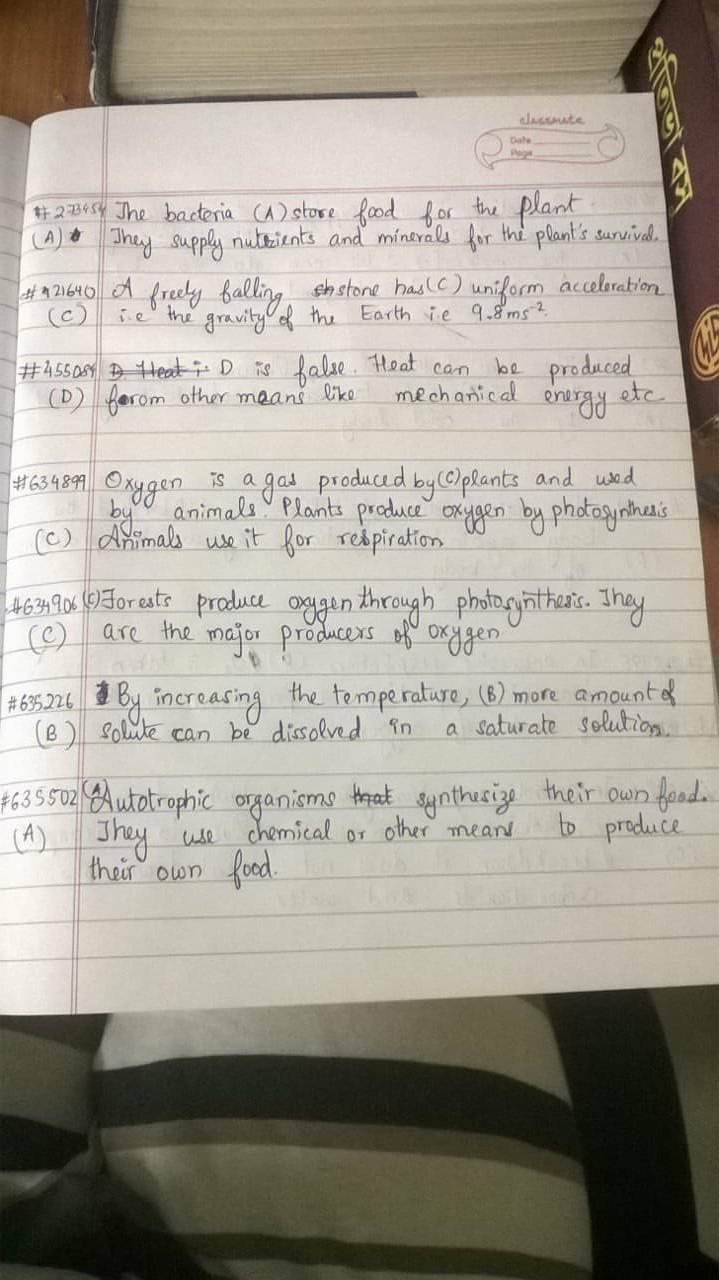 classmate
Date
Page
প্রতিভা বসু
#273454 The bacteria (A) store food for the plant.
(A) They supply nutrients and minerals for the plant's survival.
#921640 A freely falling stone has (C) uniform acceleration
(C) i.e the gravity of the Earth i.e 9.8ms⁻²
#455084 D. Heat i. D is false. Heat can be produced
(D) forom other means like mechanical energy etc.
#634899 Oxygen is a gas produced by (C) plants and used
by animals. Plants produce oxygen by photosynthesis
(C) Animals use it for respiration
#634906 (C) Forests produce oxygen through photosynthesis. They
(C) are the major producers of oxygen
#635226 By increasing the temperature, (B) more amount of
(B) solute can be dissolved in a saturate solution.
#635502 (A) Autotrophic organisms that synthesize their own food.
(A) They use chemical or other means to produce
their own food.